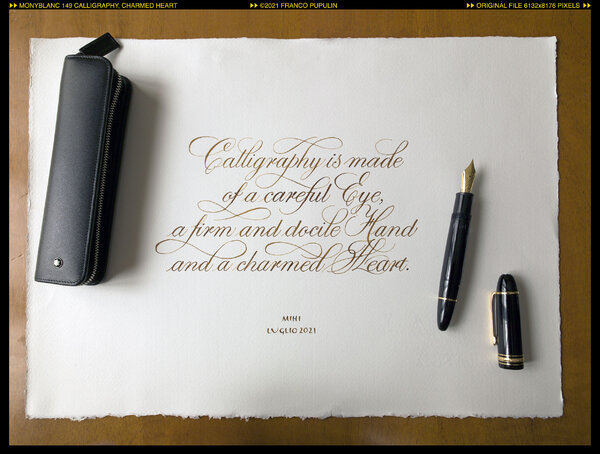 MONYBLANC 149 CALLIGRAPHY, CHARMED HEART
©2021 FRANCO PUPULIN
ORIGINAL FILE 6132x8176 PIXELS
Calligraphy is made
of a careful Eye,
a firm and docile Hand
and a charmed Heart.
MIHI
LUGLIO 2021